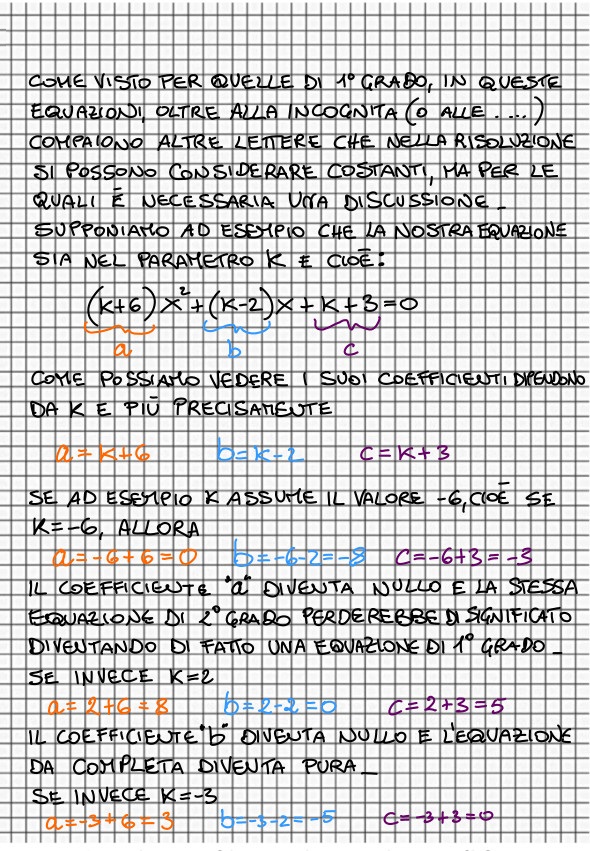 COME VISTO PER QUELLE DI 1° GRADO, IN QUESTE
EQUAZIONI, OLTRE ALLA INCOGNITA (O ALLE ....)
COMPAIONO ALTRE LETTERE CHE NELLA RISOLUZIONE
SI POSSONO CONSIDERARE COSTANTI, MA PER LE
QUALI È NECESSARIA UNA DISCUSSIONE_
SUPPONIAMO AD ESEMPIO CHE LA NOSTRA EQUAZIONE
SIA NEL PARAMETRO K E CIOÈ:
(K+6)x²+(K-2)x+K+3=0
a b c
COME POSSIAMO VEDERE I SUOI COEFFICIENTI DIPENDONO
DA K E PIÙ PRECISAMENTE
a=K+6 b=K-2 c=K+3
SE AD ESEMPIO K ASSUME IL VALORE -6, CIOÈ SE
K=-6, ALLORA
a=-6+6=0 b=-6-2=-8 C=-6+3=-3
IL COEFFICIENTE "a" DIVENTA NULLO E LA STESSA
EQUAZIONE DI 2° GRADO PERDEREBBE DI SIGNIFICATO
DIVENTANDO DI FATTO UNA EQUAZIONE DI 1° GRADO_
SE INVECE K=2
a=2+6=8 b=2-2=0 C=2+3=5
IL COEFFICIENTE "b" DIVENTA NULLO E L'EQUAZIONE
DA COMPLETA DIVENTA PURA_
SE INVECE K=-3
a=-3+6=3 b=-3-2=-5 C=-3+3=0